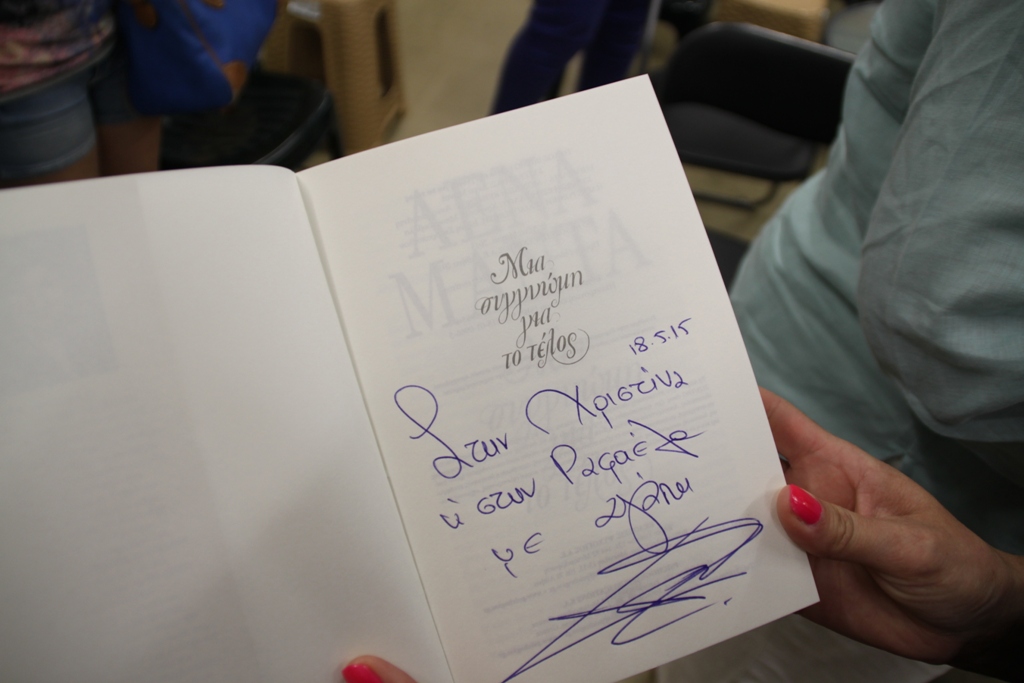 Μια
συγγνώμη
για
το τέλος
18.5.15
Στην Χριστίνα
κ' στην Ραφαέλα
με αγάπη